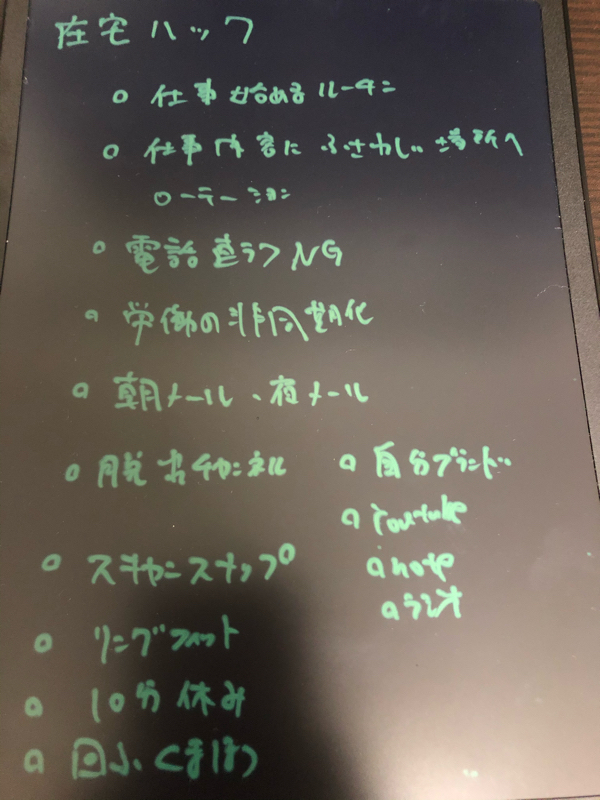 在宅ハック
○ 仕事始めるルーチン
○ 仕事内容にふさわしい場所へ
○ーテーション
○ 電話直ラフNG
○ 労働の非同期化
○ 朝メール、夜メール
○ 脱おチャンネル
○ スキャンスナップ
○ リングフィット
○ 10分休み
○ 回ふくまほう
○ 自分ブランド
○ Youtube
○ note
○ ラジオ